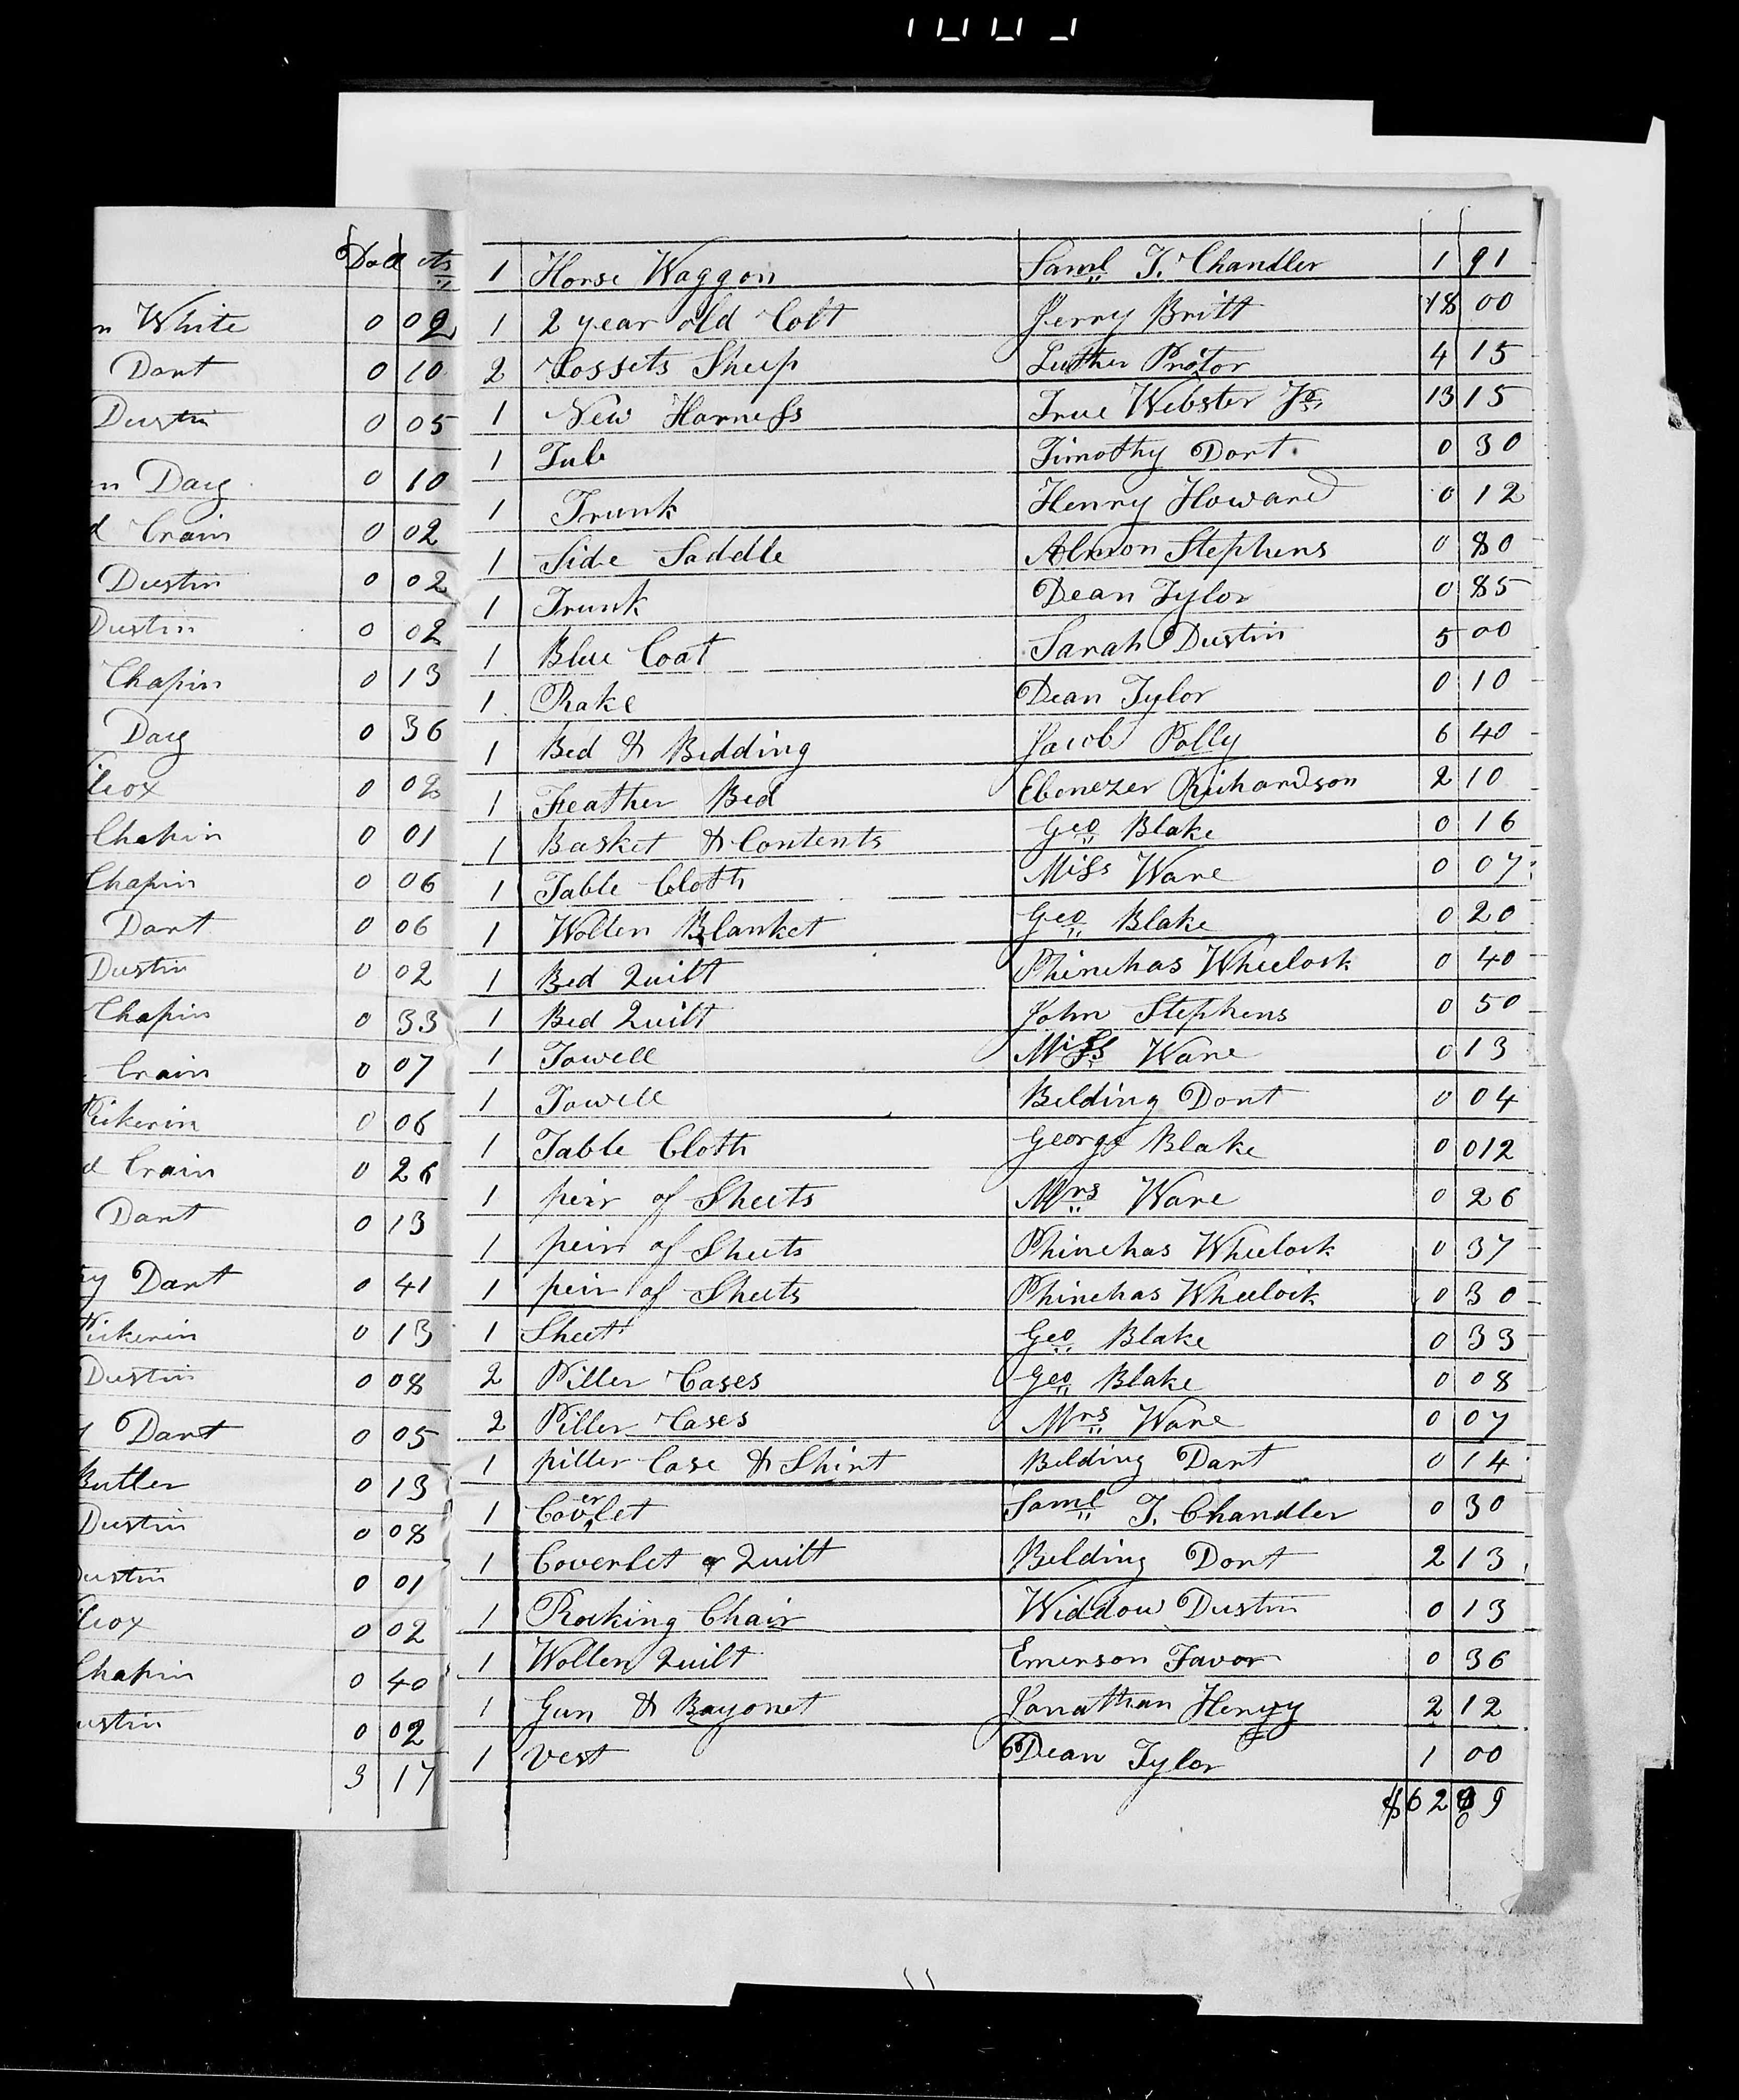 Doll cts
n White 0 02
Dart 0 10
Dustin 0 05
n Day 0 10
d Crain 0 02
Dustin 0 02
Dustin 0 02
Chapin 0 13
Day 0 36
lcox 0 02
Chapin 0 01
Chapin 0 06
Dart 0 06
Dustin 0 02
Chapin 0 33
Crain 0 07
Pickerin 0 06
d Crain 0 26
Dart 0 13
y Dart 0 41
Pickerin 0 13
Dustin 0 08
Dart 0 05
Butler 0 13
Dustin 0 08
Dustin 0 01
lcox 0 02
Chapin 0 40
ustin 0 02
3 17
1 Horse Waggon Saml T. Chandler 1 91
1 2 year old Colt Jerry Britt 18 00
2 Cossets Sheep Luther Proctor 4 15
1 New Harness True Webster Jr 13 15
1 Tub Timothy Dart 0 30
1 Trunk Henry Howard 0 12
1 Side Saddle Almon Stephens 0 80
1 Trunk Dean Tylor 0 85
1 Blue Coat Sarah Dustin 5 00
1 Rake Dean Tylor 0 10
1 Bed & Bedding Jacob Polly 6 40
1 Feather Bed Ebenezer Richardson 2 10
1 Basket & Contents Geo Blake 0 16
1 Table Cloth Miss Ware 0 07
1 Wollen Blanket Geo Blake 0 20
1 Bed Quilt Phinehas Wheelock 0 40
1 Bed Quilt John Stephens 0 50
1 Towell Miss Ware 0 13
1 Towell Belding Dart 0 04
1 Table Cloth George Blake 0 012
1 peir of Sheets Mrs Ware 0 26
1 peir of Sheets Phinehas Wheelock 0 37
1 peir of Sheets Phinehas Wheelock 0 30
1 Sheet Geo Blake 0 33
2 Piller Cases Geo Blake 0 08
2 Piller Cases Mrs Ware 0 07
1 piller Case & Shirt Belding Dart 0 14
1 Coverlet Saml T. Chandler 0 30
1 Coverlet or Quilt Belding Dart 2 13
1 Rocking Chair Widdow Dustin 0 13
1 Wollen Quilt Emerson Favor 0 36
1 Gun & Bayonet Jonathan Henry 2 12
1 Vest Dean Tylor 1 00
$62 09